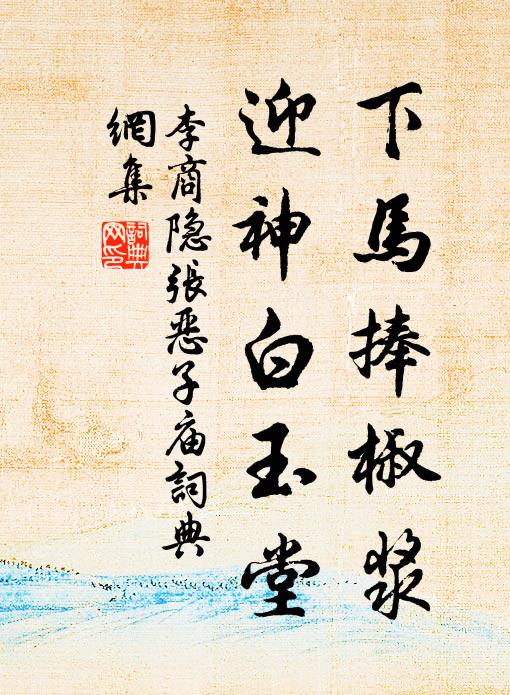 下馬捧椒漿
迎神白玉堂
李商隐張惡子庙詞典
網集
詞典网印